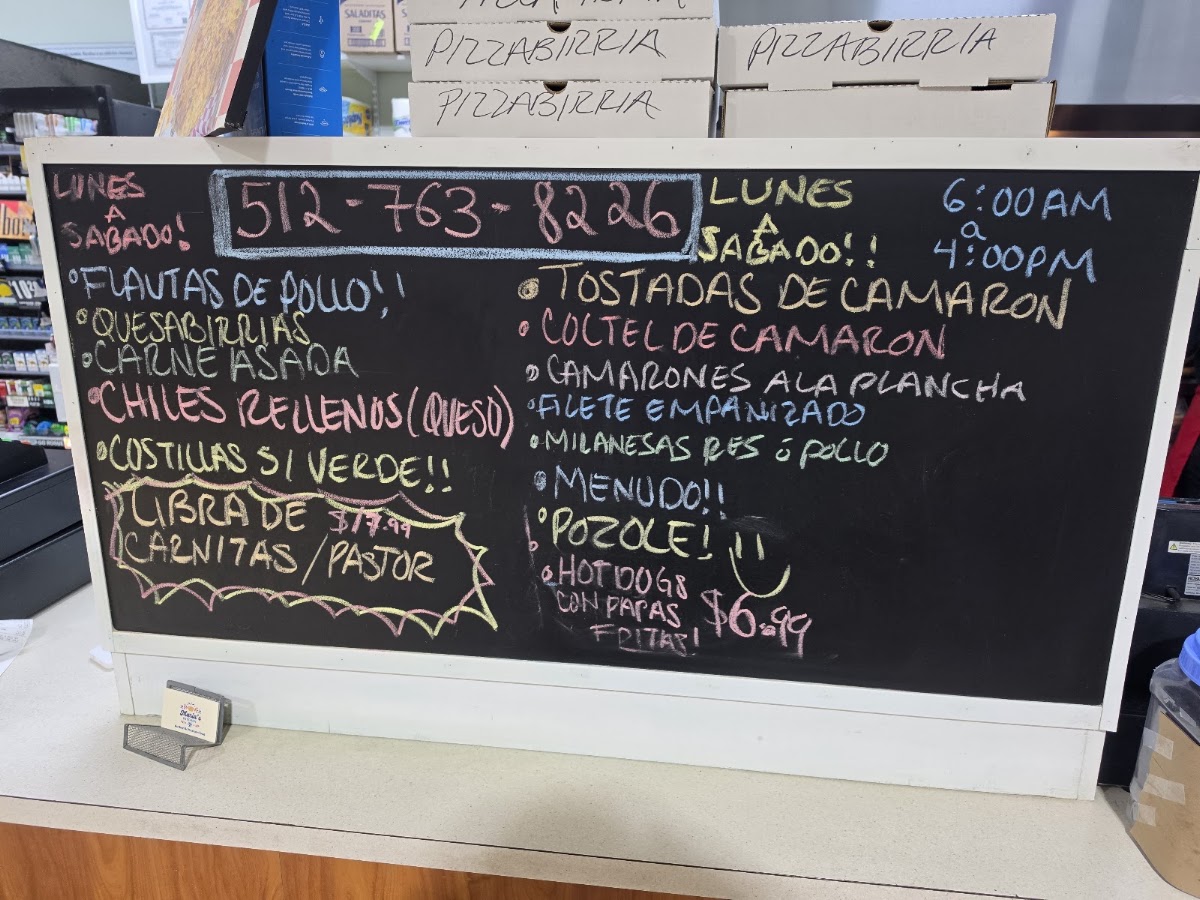 SALADITAS
PIZZABIRRIA
PIZZABIRRIA
PIZZABIRRIA
LUNES
A
SABADO!
512-763-8226
LUNES
A
SABADO!!
6:00AM
a
4:00PM
FLAUTAS DE POLLO!!
QUESABIRRIAS
CARNE ASADA
CHILES RELLENOS (QUESO)
COSTILLAS S/VERDE!!
LIBRA DE $17.99
CARNITAS/PASTOR
TOSTADAS DE CAMARON
COCTEL DE CAMARON
CAMARONES A LA PLANCHA
FILETE EMPANIZADO
MILANESAS RES ó POLLO
MENUDO!!
POZOLE!
HOTDOGS
CON PAPAS $6.99
FRITAS!
Maria's